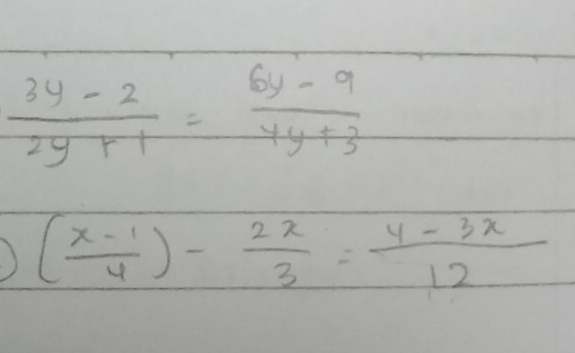 (3y - 2)/(2y + 1) = (6y - 9)/(4y + 3)
) ((x - 1)/4) - 2x/3 = (4 - 3x)/12